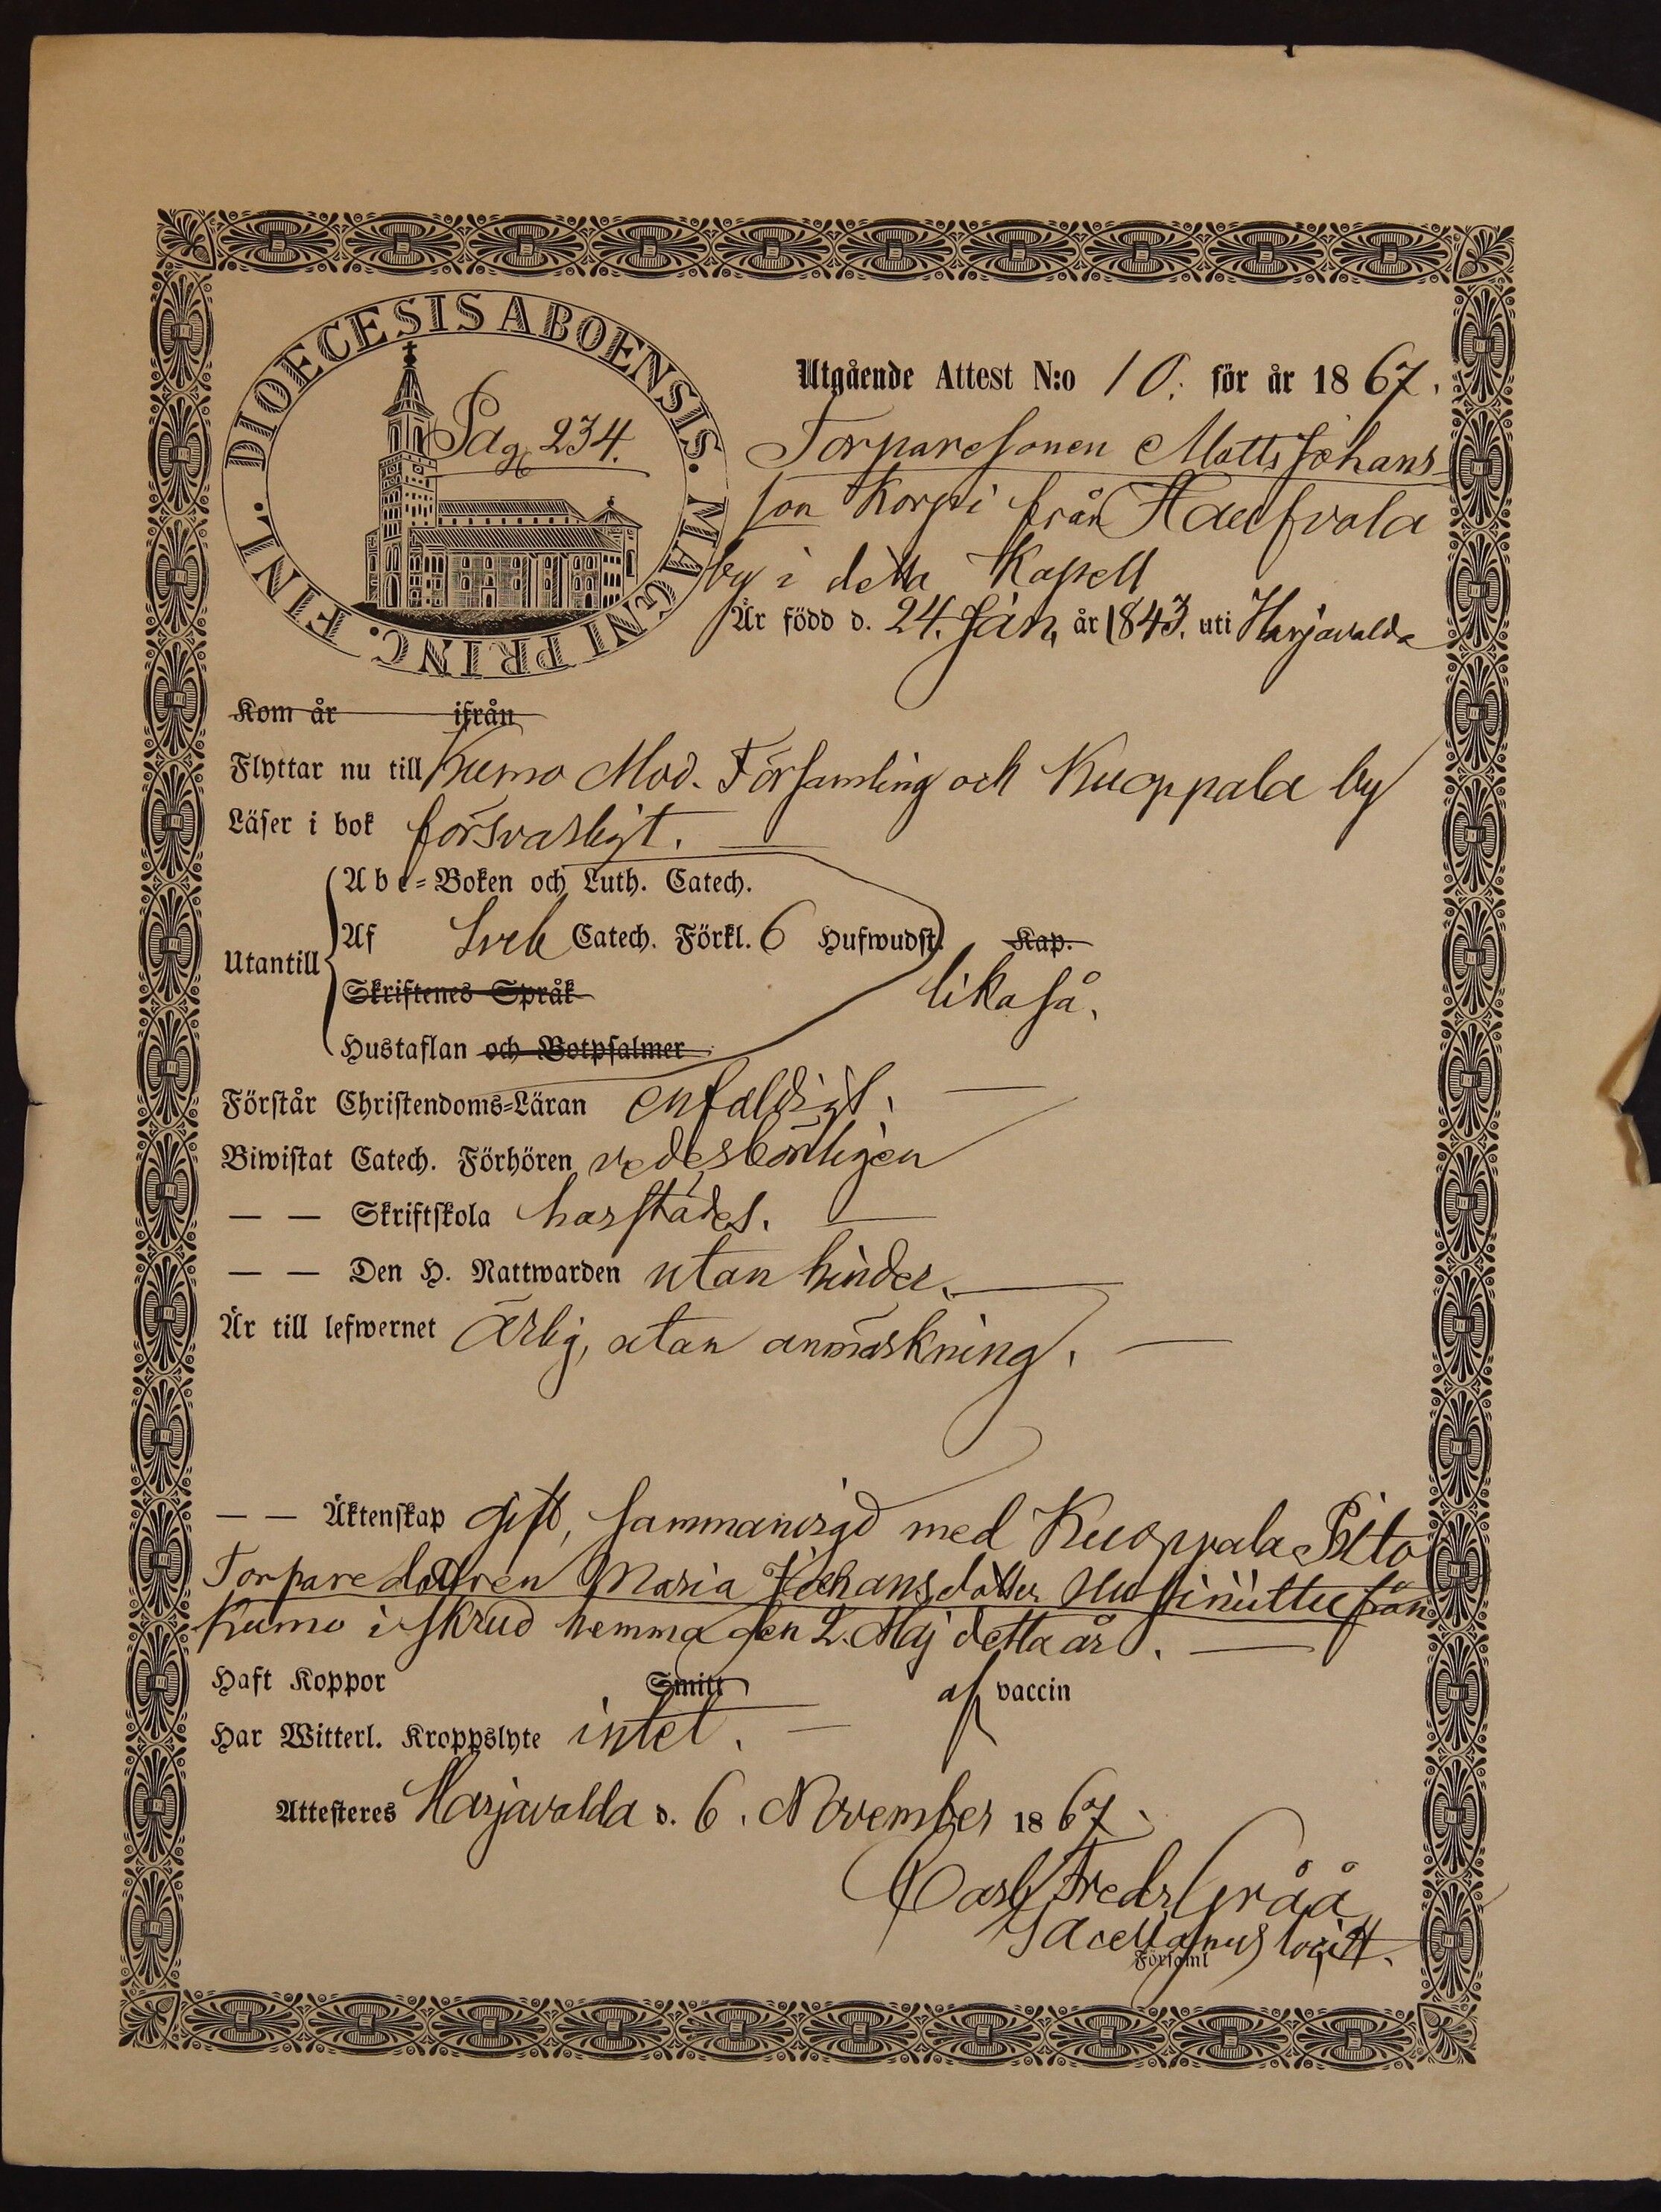 DIOECESIS ABOENSIS. MAGNI PRINC. FINL.
Pag. 234.
Utgående Attest N:o 10. för år 1867.
Torparesonen Matts Johans
son Korpi från
by i detta Kapell
Är född d. 24. Jan. år 1843. uti Harjavalda
Kom år ifrån
Flyttar nu till Kumo Mod. Församling och Kuoppala by
Läser i bok försvarligt.
Utantill
Abc-Boken och Luth. Catech.
Af Sveb Catech. Förkl. 6 Hufwudst. Kap.
Skriftenes Språk
likaså.
Hustaflan och Botpsalmer
Förstår Christendoms-Läran enfaldigt.
Biwistat Catech. Förhören vederbörligen
— — Skriftskola härstädes.
— — Den H. Nattwarden utan hinder.
Är till lefwernet Ärlig, utan anmärkning.
— — Äktenskap gift, sammanvigd med Kuoppala
Torparedottren Maria Johansdotter från
Kumo i skrud hemma den 2. Maj detta år.
Haft Koppor Smitt af vaccin
Har Witterl. Kroppslyte intet.
Attesteres Harjavalda d. 6. November 1867.
Carl Fredr Gråå
Sacellanus loci
Församl